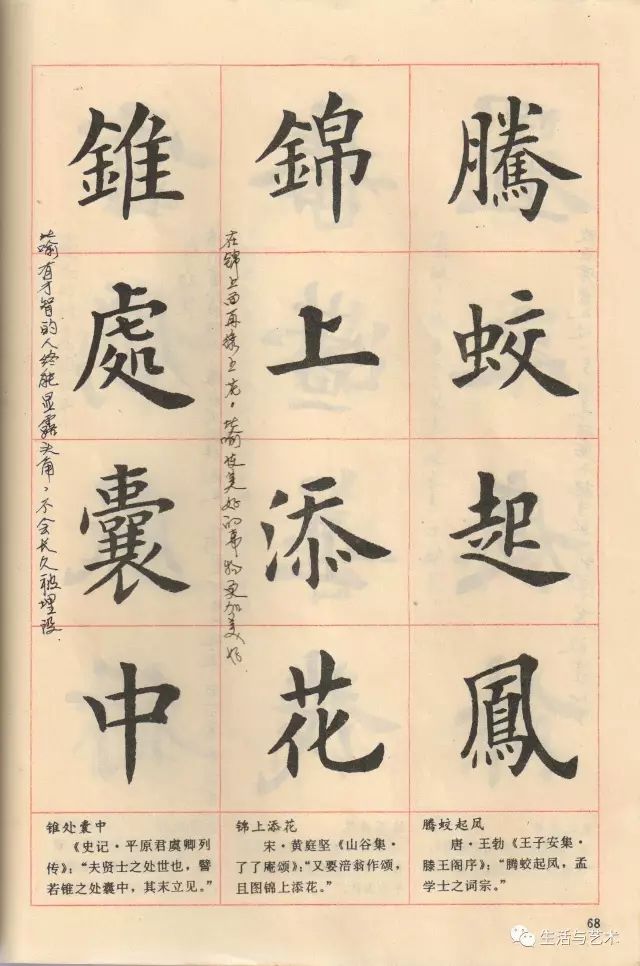 騰蛟起鳳
錦上添花
在锦上面再绣上花。比喻使美好的事物更加美好
錐處囊中
比喻有才智的人终能显露头角，不会长久被埋没
腾蛟起凤
唐·王勃《王子安集·
滕王阁序》：“腾蛟起凤，孟
学士之词宗。”
锦上添花
宋·黄庭坚《山谷集·
了了庵颂》：“又要涪翁作颂，
且图锦上添花。”
锥处囊中
《史记·平原君虞卿列
传》：“夫贤士之处世也，譬
若锥之处囊中，其末立见。”
68
生活与艺术